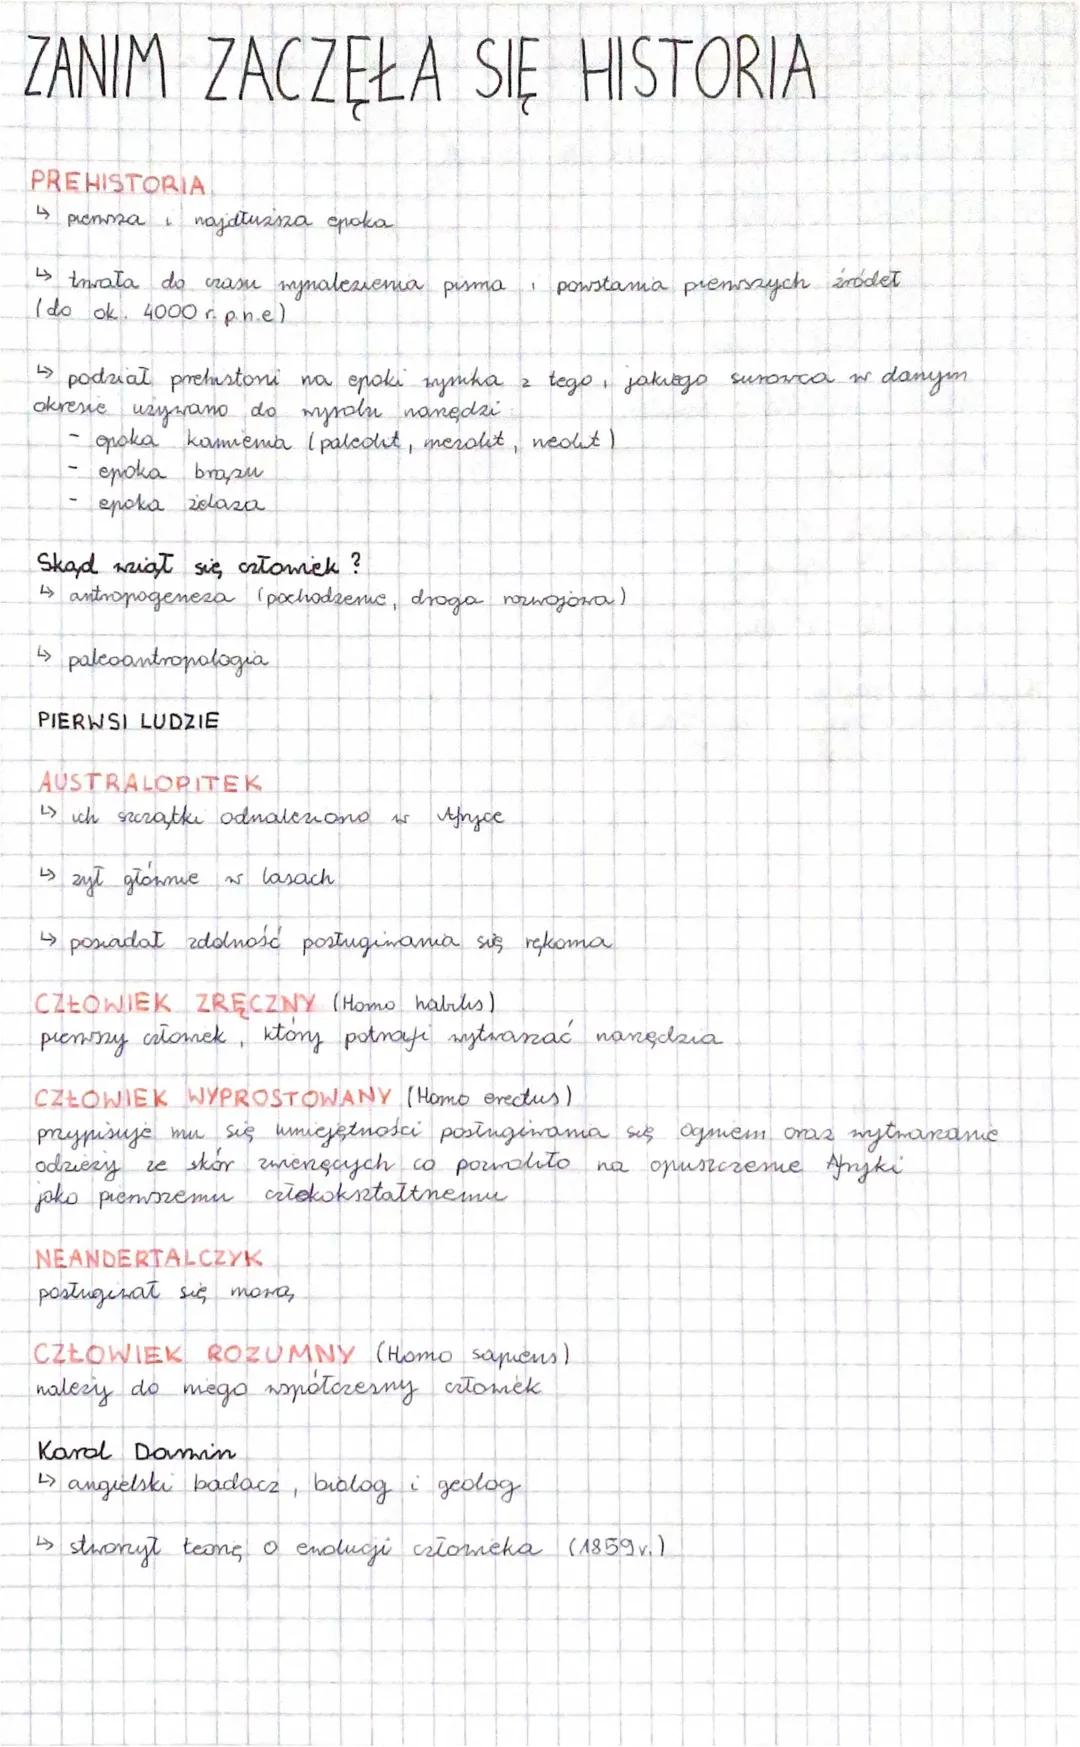 ZANIM ZACZĘŁA SIĘ HISTORIA
PREHISTORIA
↳ pierwsza i najdłuższa epoka
↳ trwała do czasu wynalezienia pisma i powstania pierwszych źródeł
(do ok. 4000 r. p.n.e)
↳ podział prehistorii na epoki wynika z tego, jakiego surowca w danym
okresie używano do wyrobu narzędzi
- epoka kamienia (paleolit, mezolit, neolit)
- epoka brązu
- epoka żelaza
Skąd wziął się człowiek?
↳ antropogeneza (pochodzenie, droga rozwojowa)
↳ paleoantropologia
PIERWSI LUDZIE
AUSTRALOPITEK
↳ ich szczątki odnaleziono w Afryce
↳ żył głównie w lasach
↳ posiadał zdolność posługiwania się rękoma
CZŁOWIEK ZRĘCZNY (Homo habilis)
pierwszy człowiek, który potrafi wytwarzać narzędzia
CZŁOWIEK WYPROSTOWANY (Homo erectus)
przypisuje mu się umiejętności posługiwania się ogniem oraz wytwarzanie
odzieży ze skór zwierzęcych co pozwoliło na opuszczenie Afryki
jako pierwszemu człekokształtnemu
NEANDERTALCZYK
posługiwał się mową
CZŁOWIEK ROZUMNY (Homo sapiens)
należy do niego współczesny człowiek
Karol Darwin
↳ angielski badacz, biolog i geolog
↳ stworzył teorię o ewolucji człowieka (1859r.)